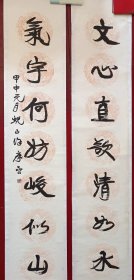 文心直欲清如水
氣宇何妨峻似山
甲申元月